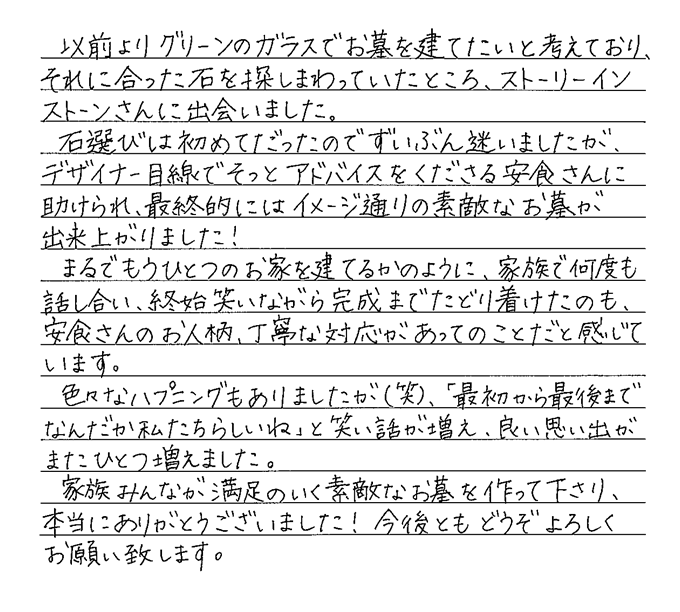 以前よりグリーンのガラスでお墓を建てたいと考えており、
それに合った石を探しまわっていたところ、ストーリーイン
ストーンさんに出会いました。
石選びは初めてだったのでずいぶん迷いましたが、
デザイナー目線でそっとアドバイスをくださる安食さんに
助けられ、最終的にはイメージ通りの素敵なお墓が
出来上がりました！
まるでもうひとつのお家を建てるかのように、家族で何度も
話し合い、終始笑いながら完成までたどり着けたのも、
安食さんのお人柄、丁寧な対応があってのことだと感じて
います。
色々なハプニングもありましたが(笑)、「最初から最後まで
なんだか私たちらしいね」と笑い話が増え、良い思い出が
またひとつ増えました。
家族みんなが満足のいく素敵なお墓を作って下さり、
本当にありがとうございました！今後ともどうぞよろしく
お願い致します。